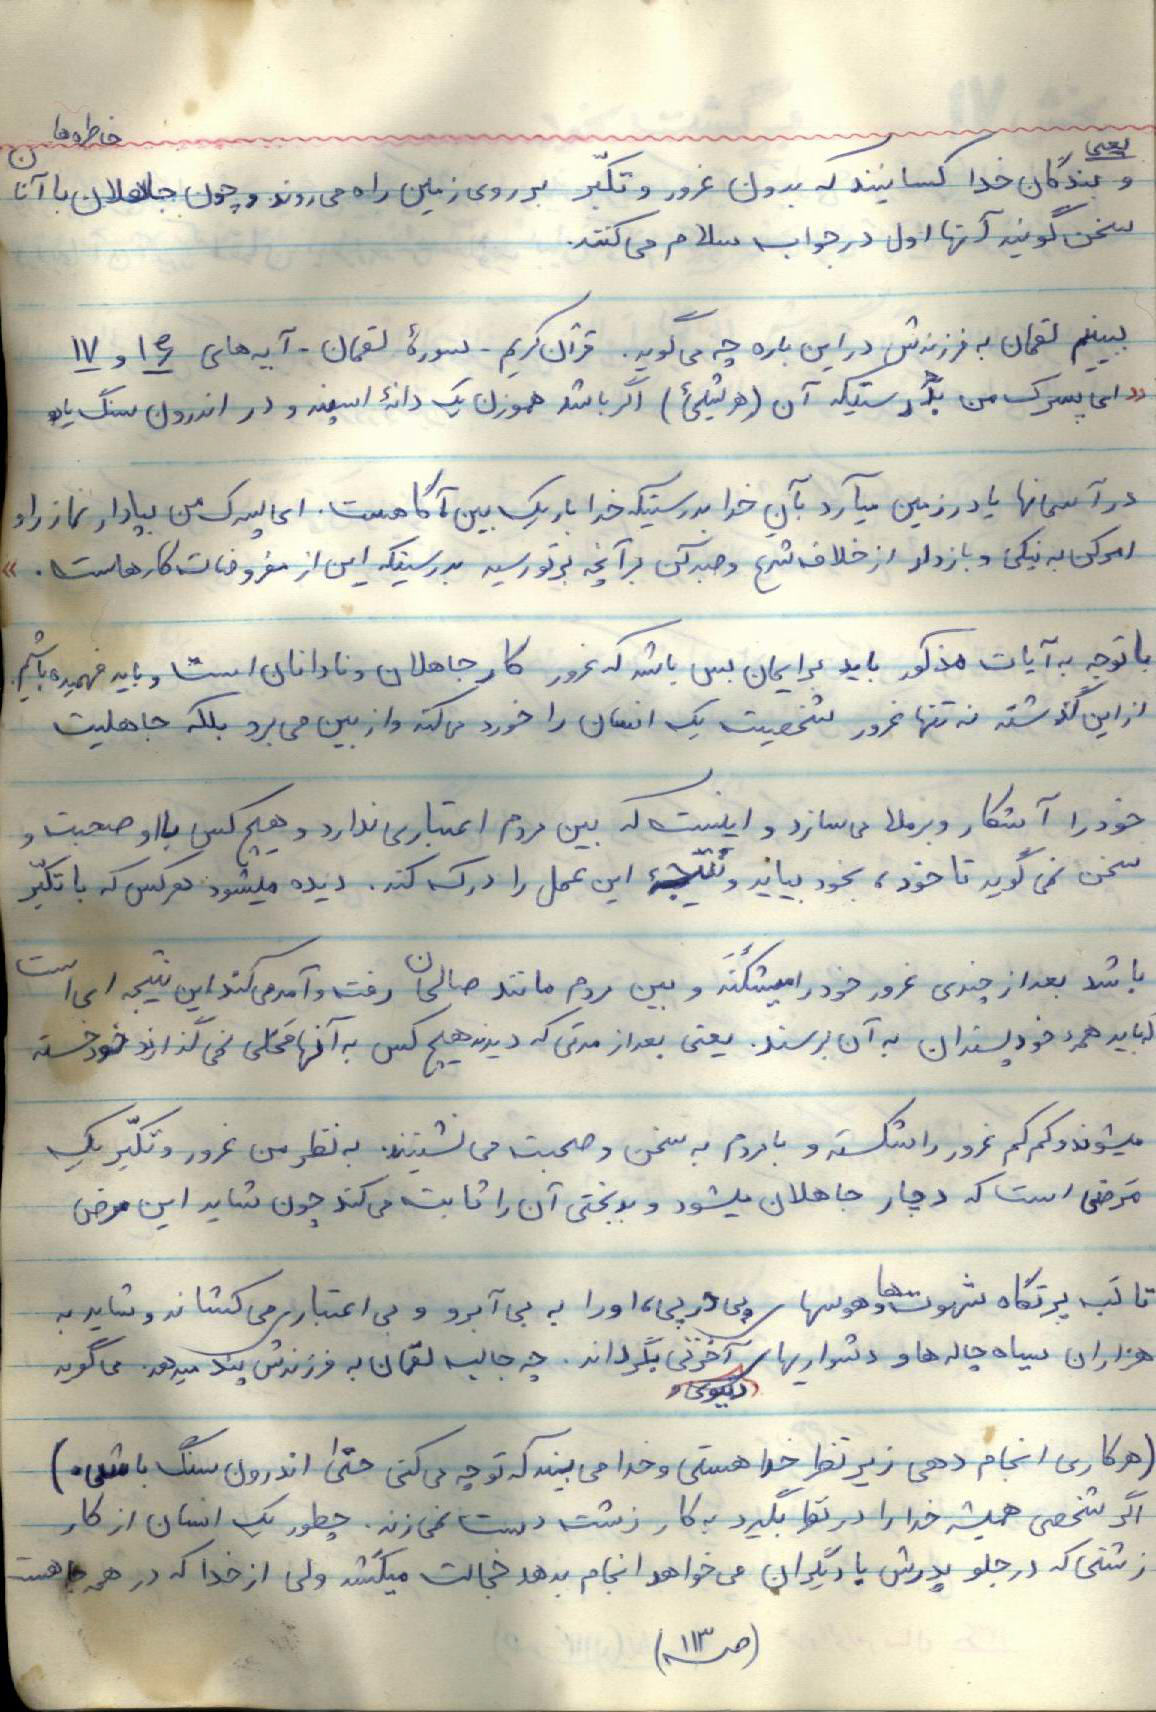 خاطره‌ها
یعنی
و بندگان خدا کسانیند که بدون غرور و تکبّر بر روی زمین راه می‌روند و چون جاهلان با آنان
سخن گویند آنها اول در جواب سلام می‌کنند.
ببینیم لقمان به فرزندش در این باره چه می‌گوید. قرآن کریم - سورهٔ لقمان - آیه‌های ۱۶ و ۱۷
«ای پسرک من بدرستیکه آن (هر شیئی) اگر باشد هموزن یک دانهٔ اسپند و در اندرون سنگ یا
در آسمانها یا در زمین میآرد بآن خدا بدرستیکه خدا باریک بین آگاهست. ای پسرک من بپادار نماز را و
امرکن به نیکی و بازدار از خلاف شرع و صبر کن بر آنچه بر تو رسید بدرستیکه این از مفروضات کارهاست. »
با توجه به آیات مذکور باید برایمان بس باشد که غرور کار جاهلان و نادانان است و باید فهمیده باشیم.
از این گذشته نه تنها غرور شخصیت یک انسان را خورد می‌کند و از بین می‌برد بلکه جاهلیت
خود را آشکار و برملا می‌سازد و اینست که بین مردم اعتباری ندارد و هیچ کس با او صحبت و
سخن نمی‌گوید تا خود، بخود بیاید و نتیجهٔ این عمل را درک کند. دیده میشود هرکس که با تکبّر
باشد بعد از چندی غرور خود را میشکند و بین مردم مانند صالحان رفت و آمد می‌کند این نتیجه ای است
که باید همهٔ خودپسندان به آن برسند. یعنی بعد از مدتی که دیدند هیچ کس به آنها محلّی نمی‌گذارند خود خسته
میشوند و کم کم غرور را شکسته و با مردم به سخن و صحبت می‌نشینند. به نظر من غرور و تکبّر یک
مَرَضی است که دچار جاهلان میشود و بدبختی آن را ثابت می‌کند چون شاید این مرض
تا لب پرتگاه شهوت‌ها و هوسها پی در پی، او را به بی آبرو و بی اعتباری می‌کشاند و شاید به
هزاران سیاه چاله ها و دشواریهای آخرتی بگرداند. چه جالب لقمان به فرزندش پند میدهد. می‌گوید
«دنیوی»
(هر کاری انجام دهی زیر نظر خدا هستی و خدا می بیند که تو چه می‌کنی حتیٰ اندرون سنگ باشی.)
اگر شخصی همیشه خدا را در نظر بگیرد به کار زشت دست نمی زند. چطور یک انسان از کار
زشتی که در جلو پدرش یا دیگران می‌خواهد انجام بدهد خجالت میکشد ولی از خدا که در همه جا هست
(صـ ۱۱۳)